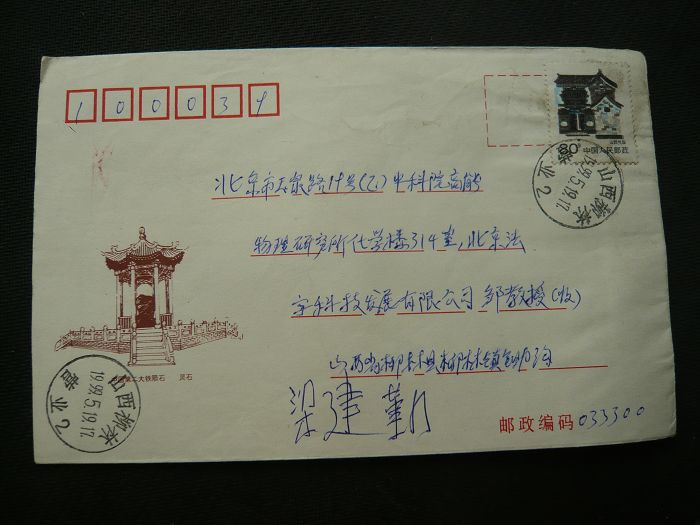 100039
80
中国人民邮政
山西柳林
1999.5.19.17
营业 2
北京市玉泉路19号(乙)中科院高能
物理研究所化学楼314室,北京法
宇科技发展有限公司 邹教授(收)
山西省柳林县柳林镇
梁建新
中国第二大铁陨石 灵石
山西柳林
1999.5.19.17
营业 2
邮政编码 033300